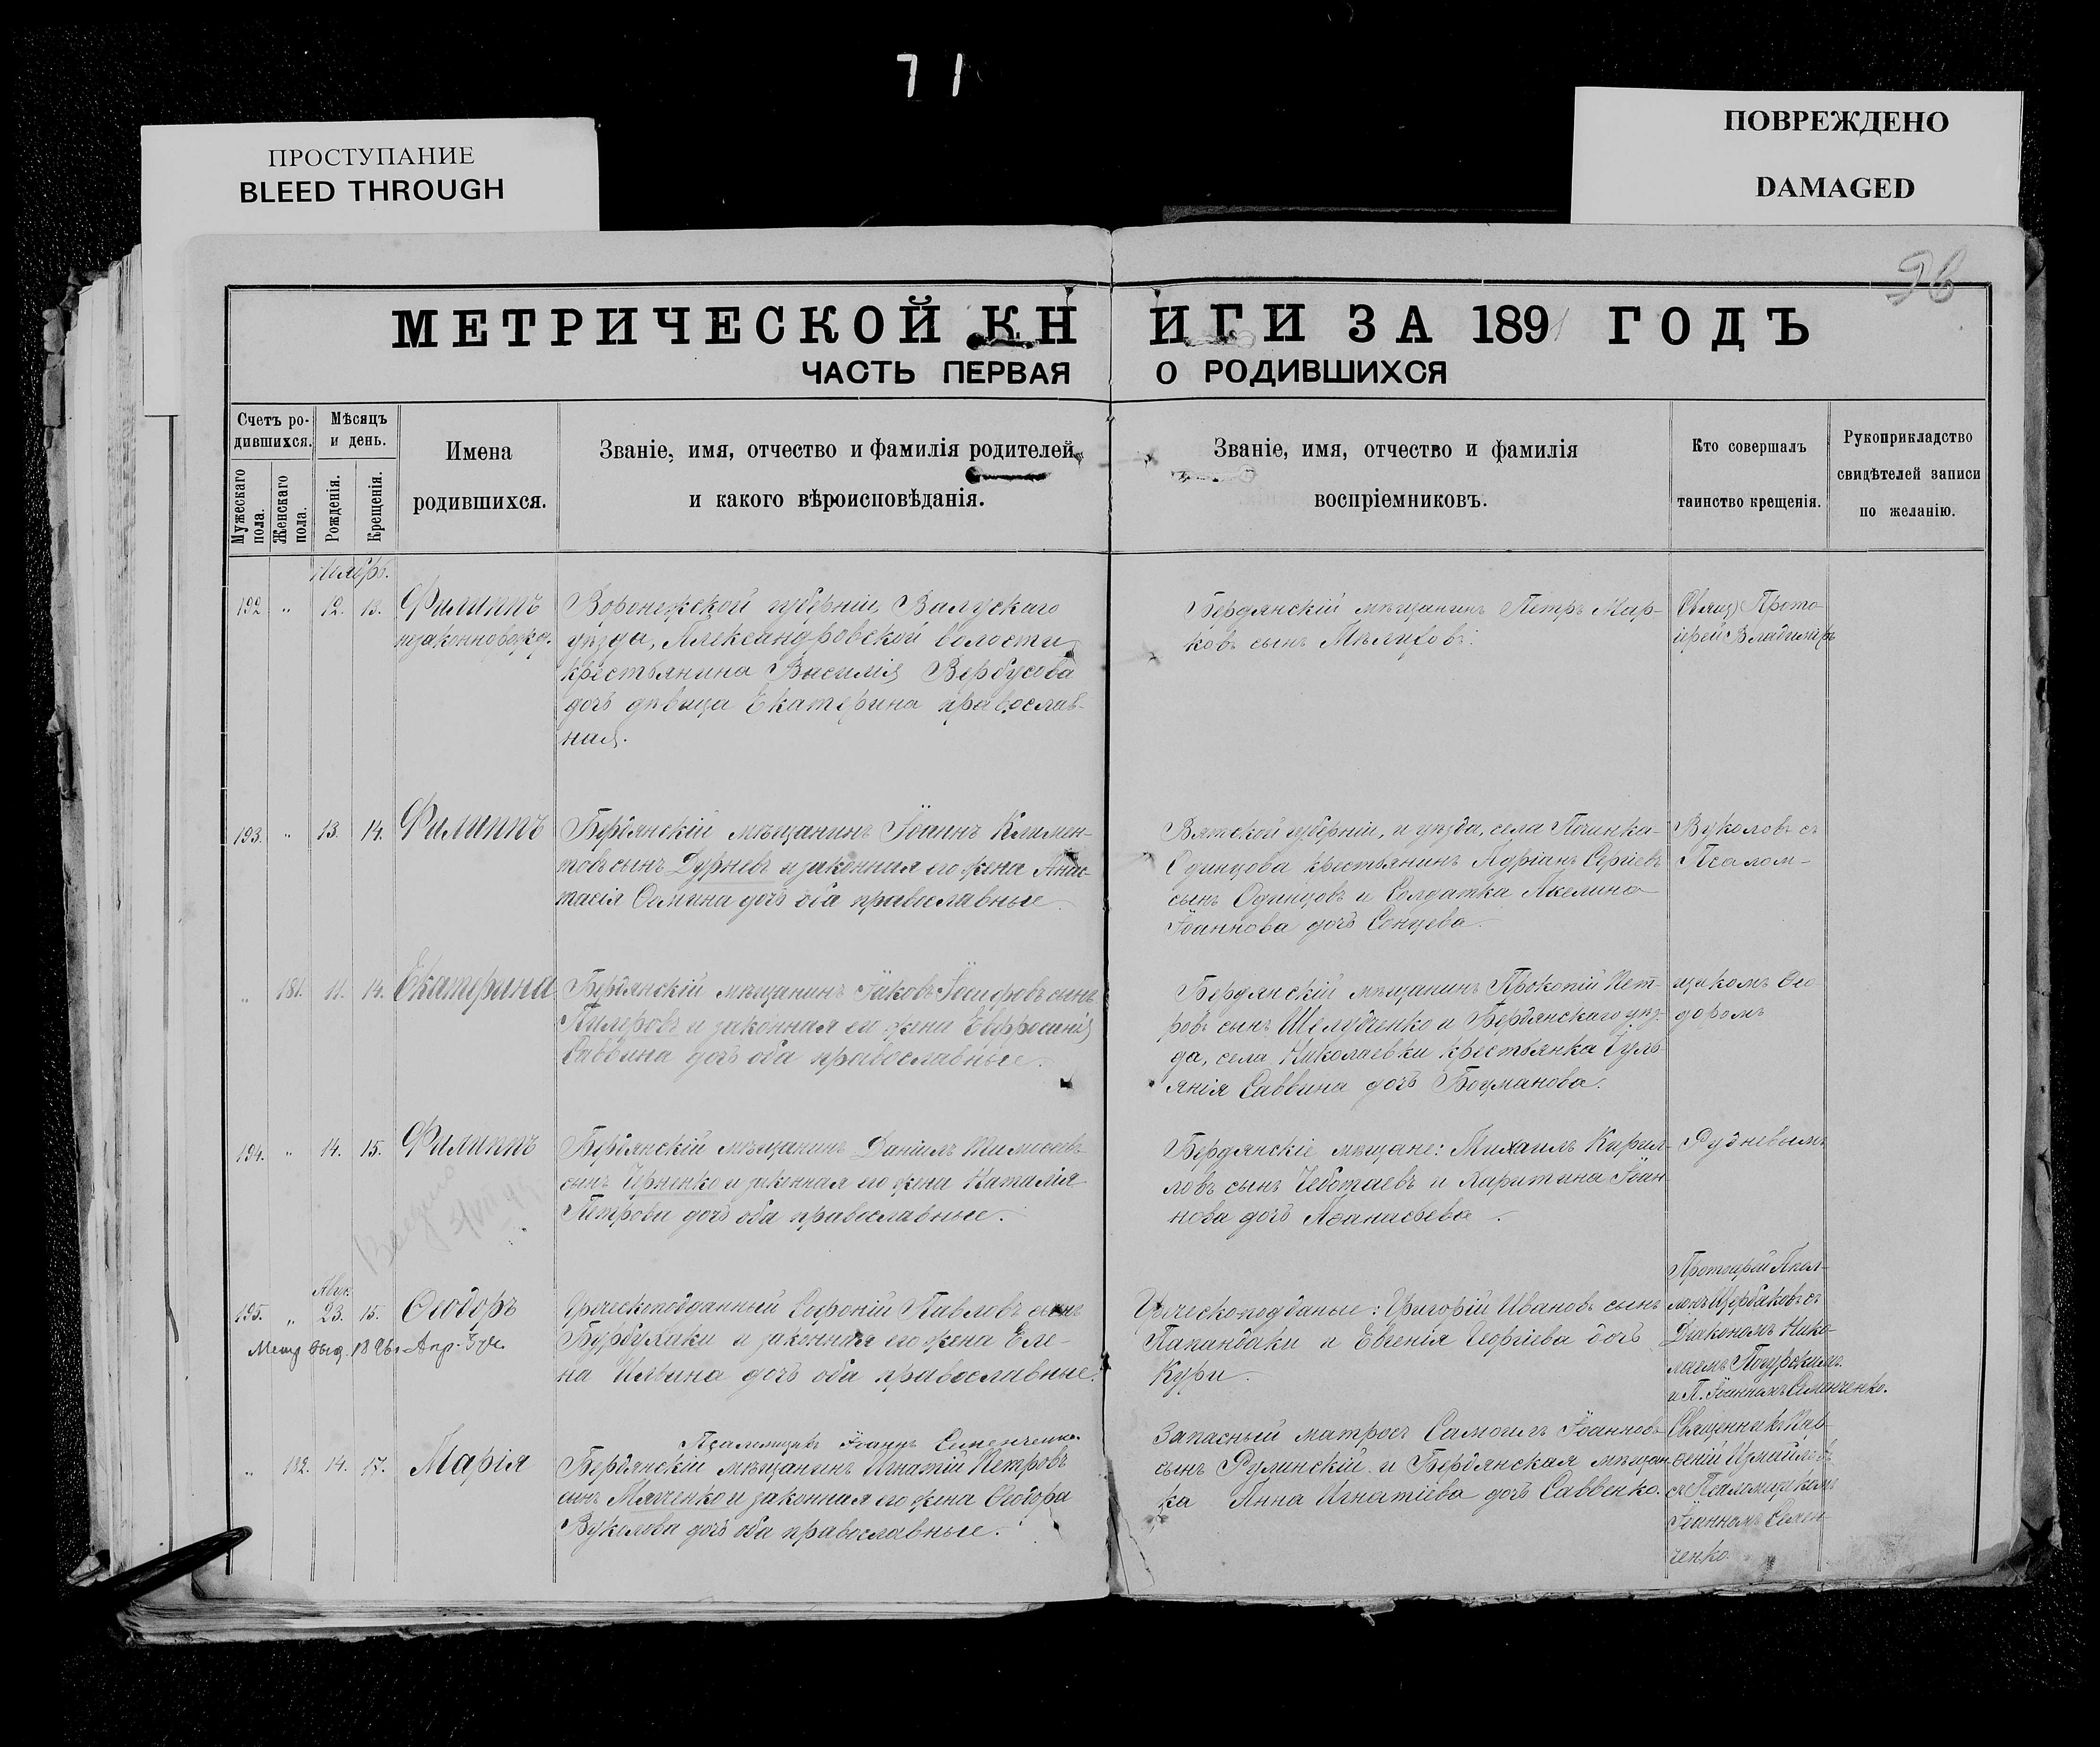 71
ПРОСТУПАНИЕ
BLEED THROUGH
ПОВРЕЖДЕНО
DAMAGED
96
МЕТРИЧЕСКОЙ КНИГИ ЗА 1891 ГОДЪ
ЧАСТЬ ПЕРВАЯ О РОДИВШИХСЯ
Счетъ ро-
дившихся.
Мужескаго
пола.
Женскаго
пола.
Мѣсяцъ
и день.
Рожденія.
Крещенія.
Имена
родившихся.
Званіе, имя, отчество и фамилія родителей,
и какого вѣроисповѣданія.
Званіе, имя, отчество и фамилія
воспріемниковъ.
Кто совершалъ
таинство крещенія.
Рукоприкладство
свидѣтелей записи
по желанію.
Ноябрь.
192 " 12. 13. Филиппъ
незаконнорожд.
Воронежской губерніи, Валуйскаго
уѣзда, Александровской волости,
крестьянина Василія Вербусова
дочь дѣвица Екатерина православ-
ная.
Бердянскій мѣщанинъ Петръ Мар-
ковъ сынъ Мѣлиховъ.
Свящ. Прото-
іерей Владиміръ
193. " 13. 14. Филиппъ
Бердянскій мѣщанинъ Іоаннъ Климен-
товъ сынъ Дурневъ и законная его жена Анас-
тасія дочь оба православные
Вятской губерніи, и уѣзда, села Починка-
Одинцова крестьянинъ Адріанъ Сергіевъ
сынъ Одинцовъ и Солдатка Акелина
Іоаннова дочь Сонцева.
Вуколовъ съ
Псалом-
" 181. 11. 14. Екатерина
Бердянскій мѣщанинъ Іаковъ Іосифовъ сынъ
и законная его жена Евфросинія
Саввина дочь оба православные.
Бердянскій мѣщанинъ Прокопій Пет-
ровъ сынъ Шелудченко и Бердянскаго уѣз-
да, села Николаевки крестьянка Іуль-
янія Саввина дочь Боуманова.
щикомъ Ѳео-
доромъ
194. " 14. 15. Филиппъ
Бердянскій мѣщанинъ Даніилъ Тимоѳеевъ
сынъ Черненко и законная его жена Наталія
Петрова дочь оба православные.
Бердянскіе мѣщане: Михаилъ Кирил-
ловъ сынъ Чеботаевъ и Харитина Іоан-
нова дочь Аѳанасьева.
Рудневымъ
Авгус.
195. " 23. 15. Ѳеодоръ
Метр. выд. 1896 г. Апр. 3 дн.
Греческоподданный Софроній Павловъ сынъ
Бурбулаки и законная его жена Еле-
на Ильина дочь оба православные.
Греческоподданые: Григорій Ивановъ сынъ
Папандаки и Евгенія Георгіева дочь
Кури.
Протоіерей
Щербаковъ съ
Діакономъ Нико-
лаемъ
и П. Іоанномъ Семенченко.
Псаломщикъ Іоаннъ Семенченко
" 182. 14. 17. Марія
Бердянскій мѣщанинъ Игнатій Петровъ
сынъ Мягченко и законная его жена Ѳеодора
Вуколова дочь оба православные.
Запасный матросъ Самоилъ Іоанновъ
сынъ Руминскій и Бердянская мѣщан-
ка Анна Игнатіева дочь Саввенко.
Священникъ Пав-
Измайловъ
съ Псаломщикомъ
Іоанномъ Семен-
ченко.